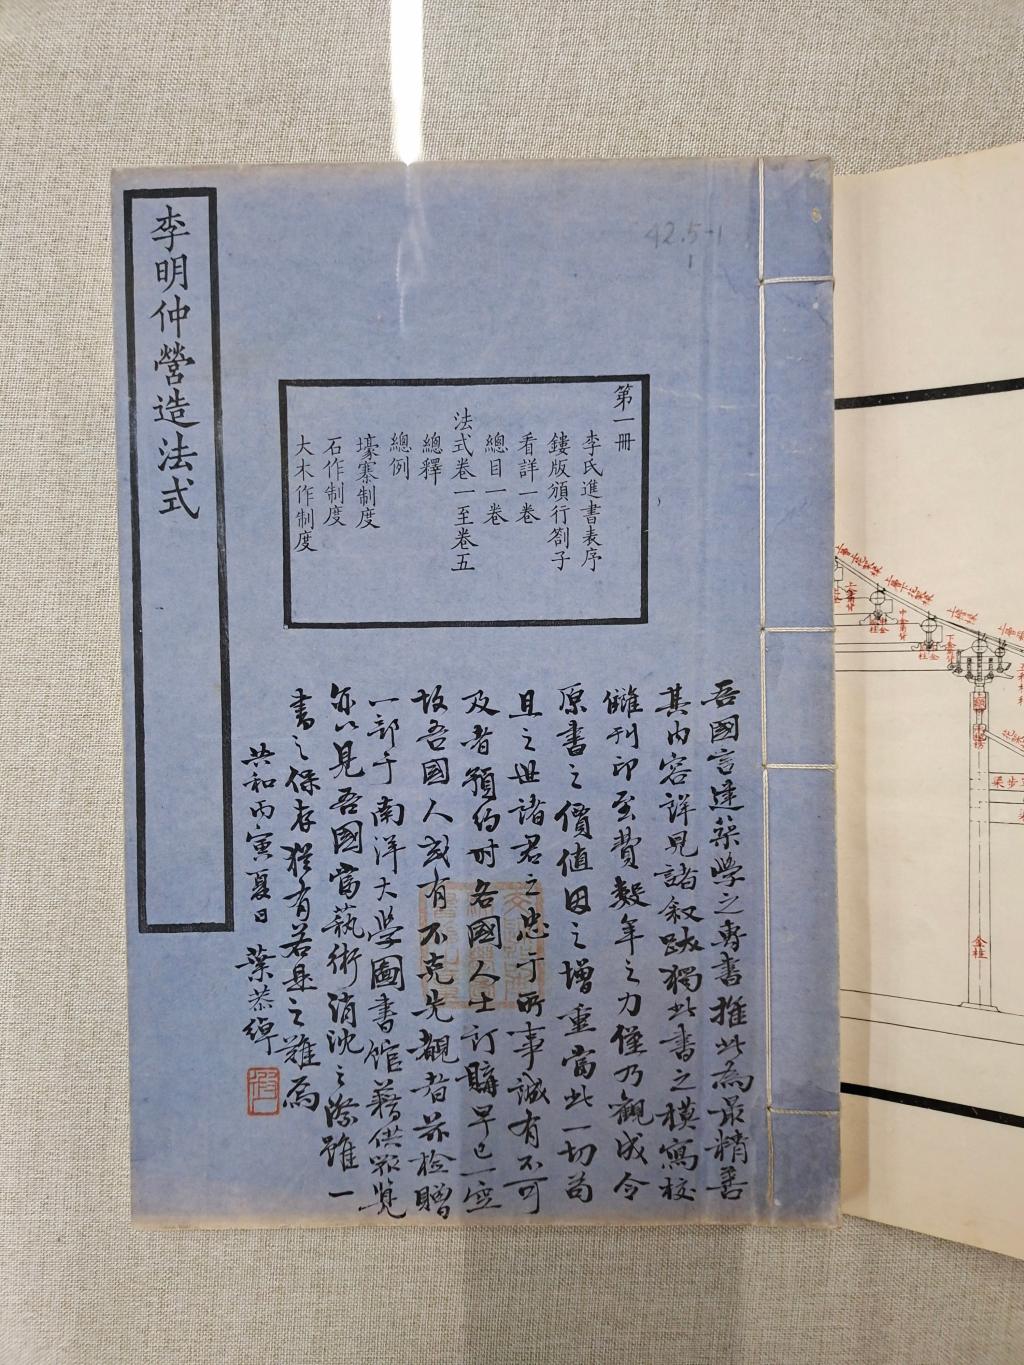 李明仲營造法式
42.5-1
1
第一冊
李氏進書表序
鏤版頒行劄子
看詳一卷
總目一卷
法式卷一至卷五
總釋
總例
壕寨制度
石作制度
大木作制度
吾國言建築學之專書推此為最精善
其內容詳見諸叙跋獨此書之模寫校
讎刊印至費數年之力僅乃觀成令
原書之價值因之增重當此一切苟
且之世諸君之忠于所事誠有不可
及者預約時各國人士訂購早已一空
故吾國人或有不克先覩者茲檢贈
一部于南洋大學圖書館藉供眾覽
亦以見吾國當藝術消沈之際雖一
書之保存猶有若是之難焉
共和丙寅夏日 葉恭綽
金柱